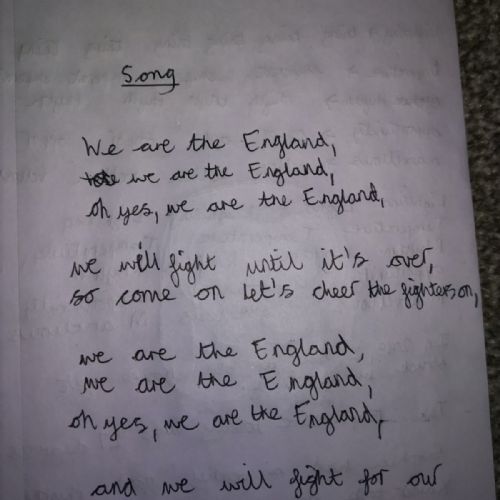 Song
We are the England,
we are the England,
oh yes, we are the England,
we will fight until it's over,
so come on let's cheer the fighters on,
we are the England,
we are the England,
oh yes, we are the England,
and we will fight for our